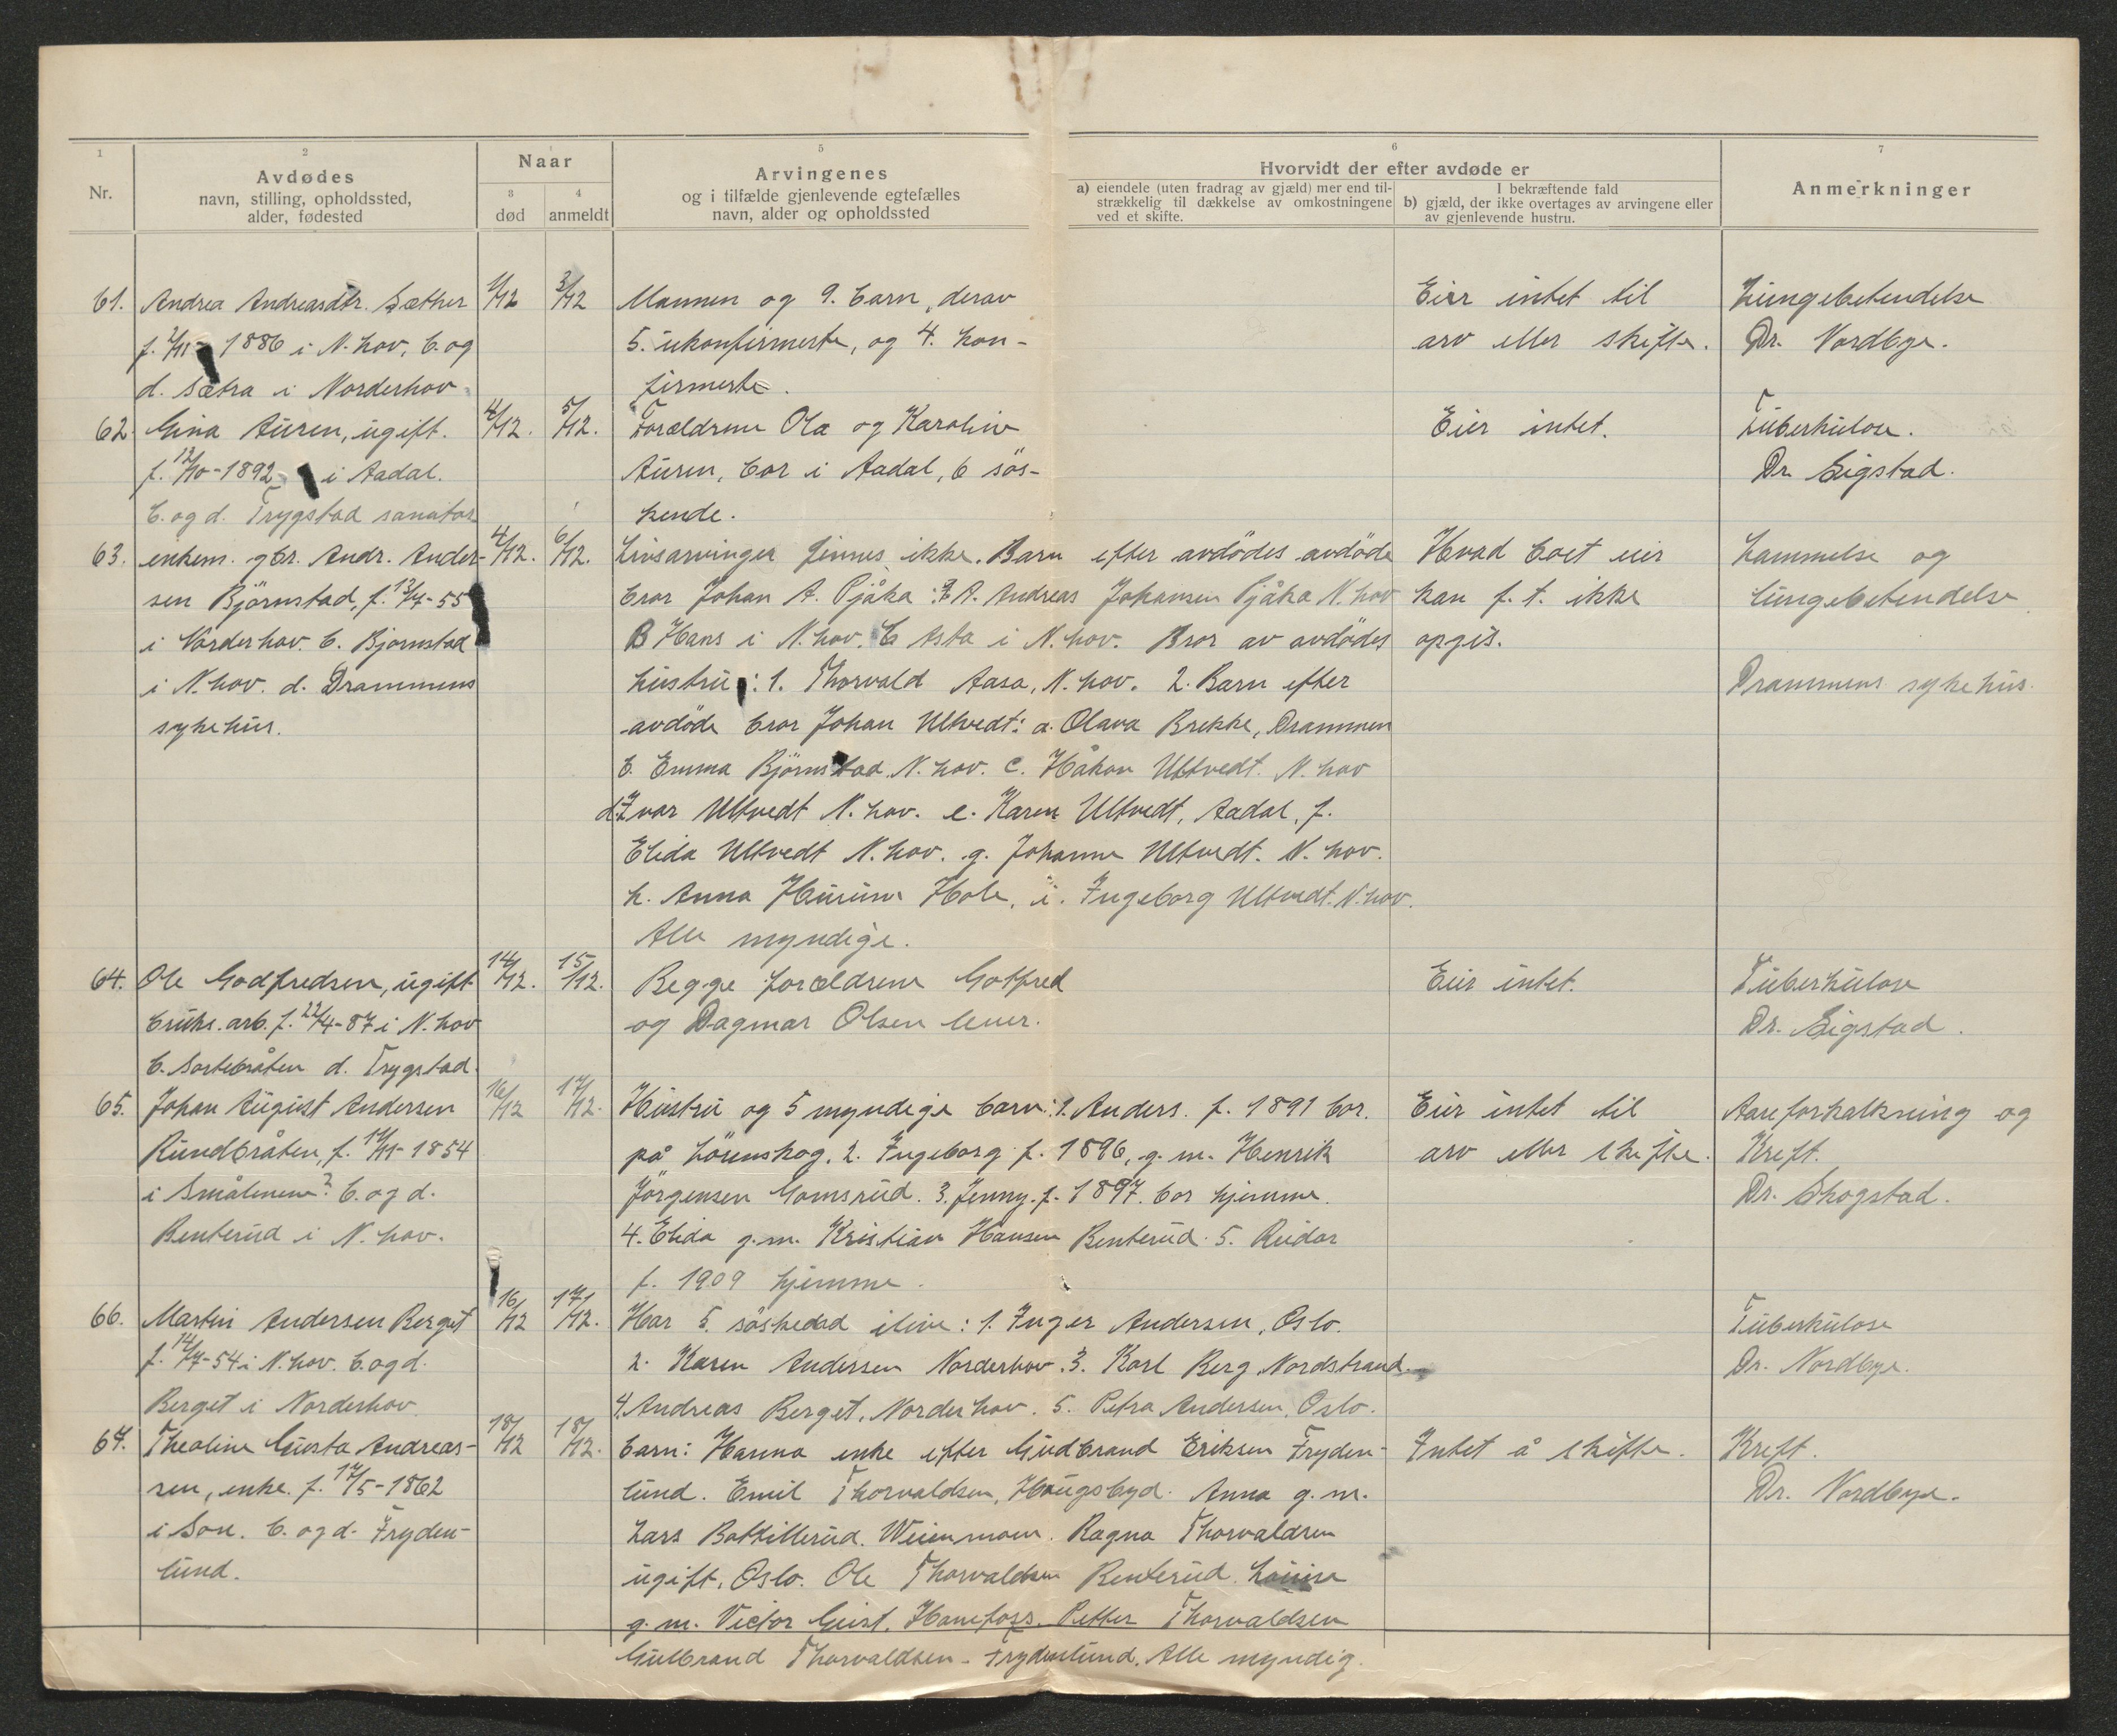 1
Nr.
2
Avdødes
navn, stilling, opholdssted,
alder, fødested
Naar
3
død
4
anmeldt
5
Arvingenes
og i tilfælde gjenlevende egtefælles
navn, alder og opholdssted
6
Hvorvidt der efter avdøde er
a) eiendele (uten fradrag av gjæld) mer end til-
strækkelig til dækkelse av omkostningene
ved et skifte.
I bekræftende fald
b) gjæld, der ikke overtages av arvingene eller
av gjenlevende hustru.
7
Anmerkninger
61.
Andrea Andreasdtr. Sæther
f. 7/11-1886 i N. hov, b. og
d. Sætra i Norderhov
1/12
3/12
Mannen og 9. barn, derav
5. ukonfirmerte, og 4. kon-
firmerte.
Eier intet til
arv eller skifte.
Lungebetendelse
Dr. Nordbye.
62.
Gina Auren, ugift.
f. 13/10-1892 i Aadal.
b. og d. Trygstad sanator
4/12.
5/12.
Forældrene Ola og Karoline
Auren, bor i Aadal, 6 søs-
kende.
Eier intet.
Tuberkulose.
Dr. Sigstad.
63.
enkem. gbr. Andr. Ander-
sen Björnstad, f. 13/4-55
i Norderhov. b. Bjornstad
i N. hov. d. Drammens
sykehus.
4/12.
6/12.
Livsarvinger finnes ikke. Barn efter avdödes avdöde
bror Johan A. Pjåka: A. Andreas Johansen Pjåka N. hov
B Hans i N. hov. C Asta i N. hov. Bror av avdödes
hustru: 1. Thorvald Aasa, N. hov. 2. Barn efter
avdöde bror Johan Ultvedt: a. Olava Brekke, Drammen
b. Emma Björnstad N. hov. c. Håkon Ultvedt. N. hov
d. Ivar Ultvedt N. hov. e. Karen Ultvedt, Aadal, f.
Elida Ultvedt N. hov. g. Johanne Ultvedt. N. hov.
h. Anna Hurum Hole, i. Ingeborg Ultvedt. N. hov.
Alle myndige.
Hvad boet eier
kan f. t. ikke
opgis.
Lammelse og
lungebetendelse
Drammens sykehus.
64.
Ole Godfredsen, ugift
bruks. arb. f. 22/4-87 i N. hov
b. Sortebråten d. Trygstad.
14/12.
15/12.
Begge forældrene Gotfred
og Dagmar Olsen lever.
Eier intet.
Tuberkulose
Dr. Sigstad.
65.
Johan August Andersen
Rundbråten, f. 14/11-1854
i Smålenene? b. og d.
Benterud i N. hov.
16/12
17/12.
Hustru og 5 myndige barn: 1. Anders. f. 1891 bor.
på Lörenskog. 2. Ingeborg f. 1896, g. m. Henrik
Jörgensen Gomsrud. 3. Jenny. f. 1897. bor hjemme.
4. Elida g. m. Kristian Hansen Benterud. 5. Reidar
f. 1909 hjemme.
Eier intet til
arv eller skifte.
Aareforkalkning og
Kreft.
Dr. Skogstad.
66.
Martin Andersen Berget
f. 14/7-54 i N. hov. b. og d.
Berget i Norderhov
16/12
17/12.
Har 5. söskedad ilive: 1. Inger Andersen, Oslo.
2. Karen Andersen Norderhov. 3. Karl Berg, Nordstrand.
4. Andreas Berget, Norderhov. 5. Petra Andersen, Oslo.
Tuberkulose
Dr. Nordbye.
67.
Theoline Gusta Andreas-
sen, enke. f. 17/5-1862
i Son. b. og d. Fryden-
lund.
18/12
18/12.
barn: Hanna enke efter Gudbrand Eriksen Fryden-
lund. Emil Thorvaldsen, Haugsbygd. Anna g. m.
Lars Bottillerud. Weienmoen. Ragna Thorvaldsen
ugift, Oslo. Ole Thorvaldsen Benterud. Louise
g. m. Victor Geist, Hønefoss. Petter Thorvaldsen
Gulbrand Thorvaldsen - Frydenlund. Alle myndig.
Intet å skifte.
Kreft.
Dr. Nordbye.